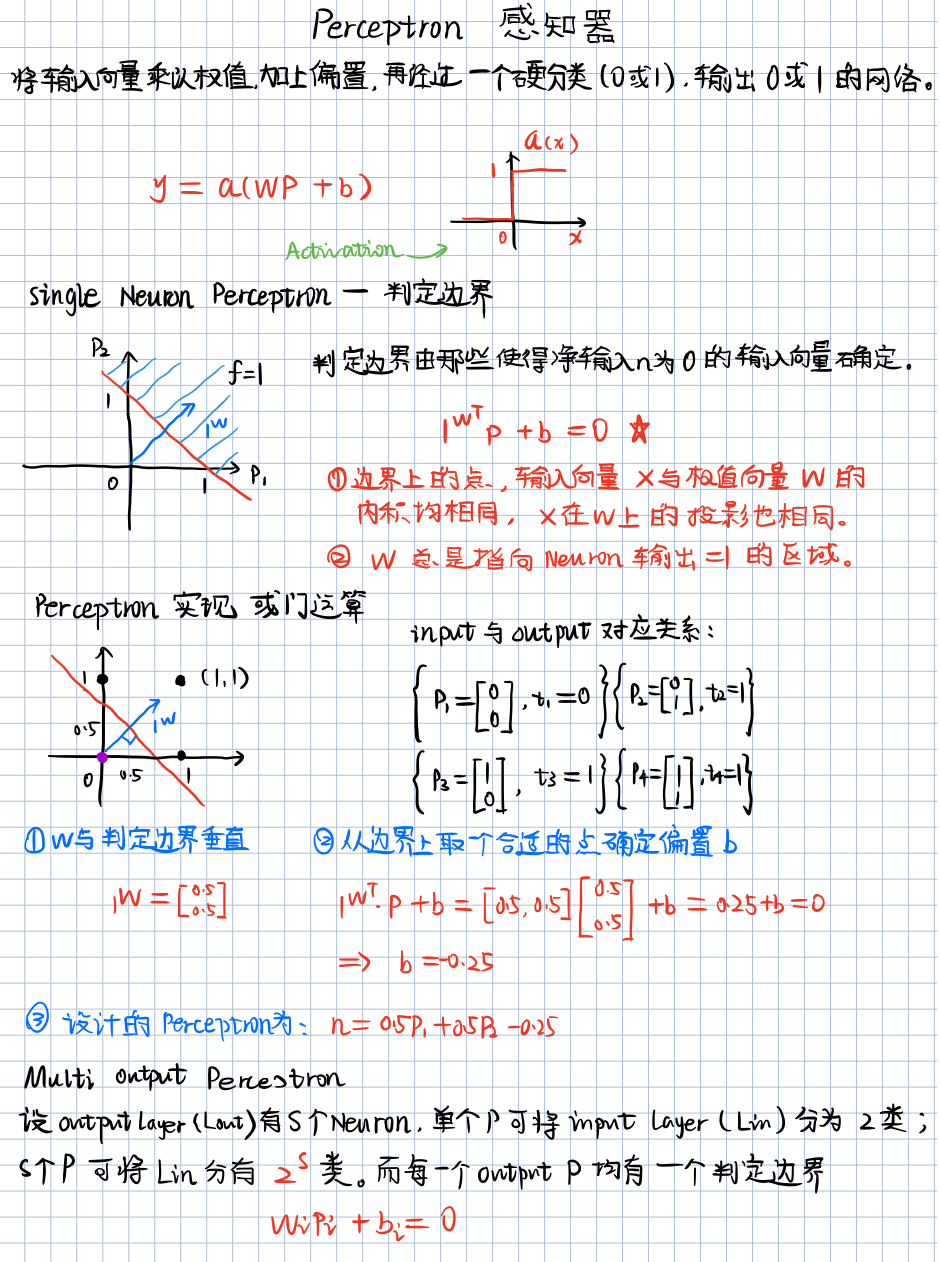 Perceptron 感知器
将输入向量乘以权值,加上偏置,再经过一个硬分类(0或1),输出0或1的网络。
a(x)
1
y = a(WP + b)
0 x
Activation
single Neuron Perceptron — 判定边界
P2
判定边界由那些使得净输入n为0的输入向量确定.
f=1
1
1W
1W^T P + b = 0 ☆
0 1 P1
①边界上的点,输入向量 X与权值向量 W 的
内积均相同, X在W上的投影也相同。
② W 总是指向 Neuron 输出=1 的区域。
Perceptron 实现 或门运算
input 与 output 对应关系:
1 (1,1)
{P1=[0 0], t1=0} {P2=[0 1], t2=1}
0.5 1W
0 0.5 1
{P3=[1 0], t3=1} {P4=[1 1], t4=1}
①W与判定边界垂直
②从边界上取个合适的点确定偏置b
1W=[0.5 0.5]
1W^T·P+b=[0.5,0.5][0.5 0.5]+b=0.25+b=0
=> b=-0.25
③ 设计的 Perceptron为: n=0.5P1+0.5P2-0.25
Multi output Percestron
设 output layer (Lout)有S个Neuron, 单个P可将 input layer (Lin) 分为 2类;
S个P 可将 Lin 分有 2^S 类。而每一个output P 均有一个判定边界
WiPi + bi = 0